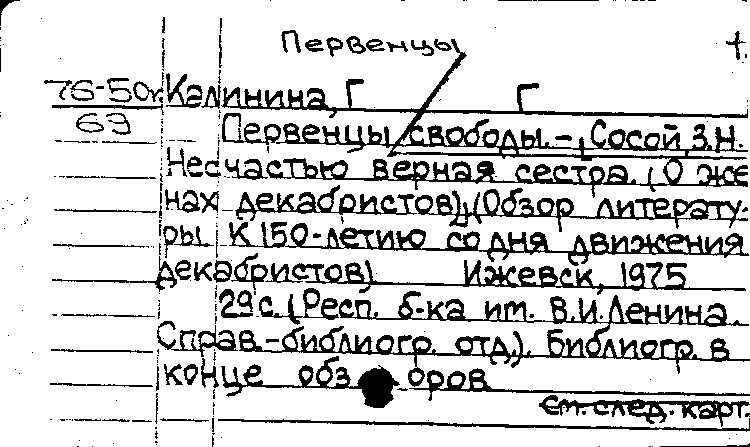 Первенцы
76-50к Калинина, Г Г
69 Первенцы свободы. – , Сосой, З.Н.
Несчастью верная сестра. (О же
нах декабристов), (Обзор литерату-
ры К 150-летию со дня движения
декабристов) Ижевск, 1975
29 с. (Респ. б-ка им. В.И.Ленина.
Справ.-библиогр. отд.). Библиогр. в
конце обзоров
См. след. карт.